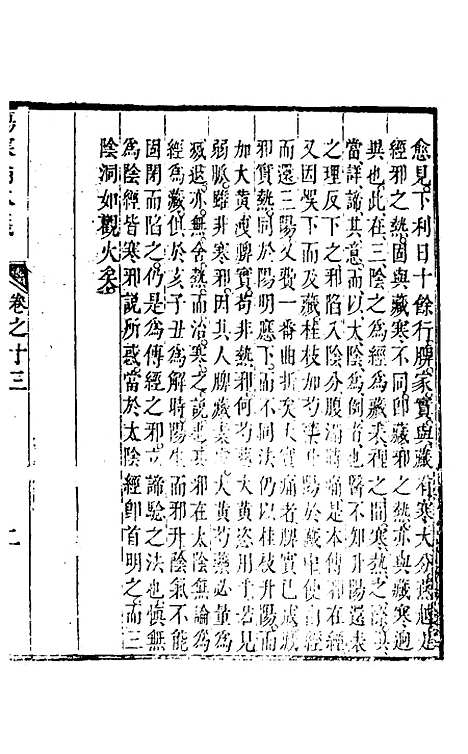 愈見下利日十餘行脾家實與藏有寒大分
經邪之熱固與藏寒不同即藏邪之熱亦與藏寒迥
異也此在三陰之為經為藏表裡之間寒熱之際具
當詳諦其意而以太陰為倒者也醫不知升陽還表
之理反下之邪陷入陰分腹滿時痛是本傳邪在經
又因誤下而及藏桂枝加芍藥升陽於藏中使自經
而還三陽又費一番曲折矣大實痛者脾實已成
邪實熱同於陽明應下而不同法仍以桂枝升陽而
加大黃瀉脾實苟非熱利何芍藥大黃恣用
弱脈雖非寒邪因其人脾藏素大黃芍藥必量為
亦無舍熱而治寒之說也邪在太陰無論為
經為藏但於亥子丑為解時陽生而邪升陰氣不能
固閉而陷之仍是為傳經之邪立諦驗之法也慎無
為陰經皆寒邪說所惑當於太陰經即首明之而三
陰洞如觀火矣
卷之十三